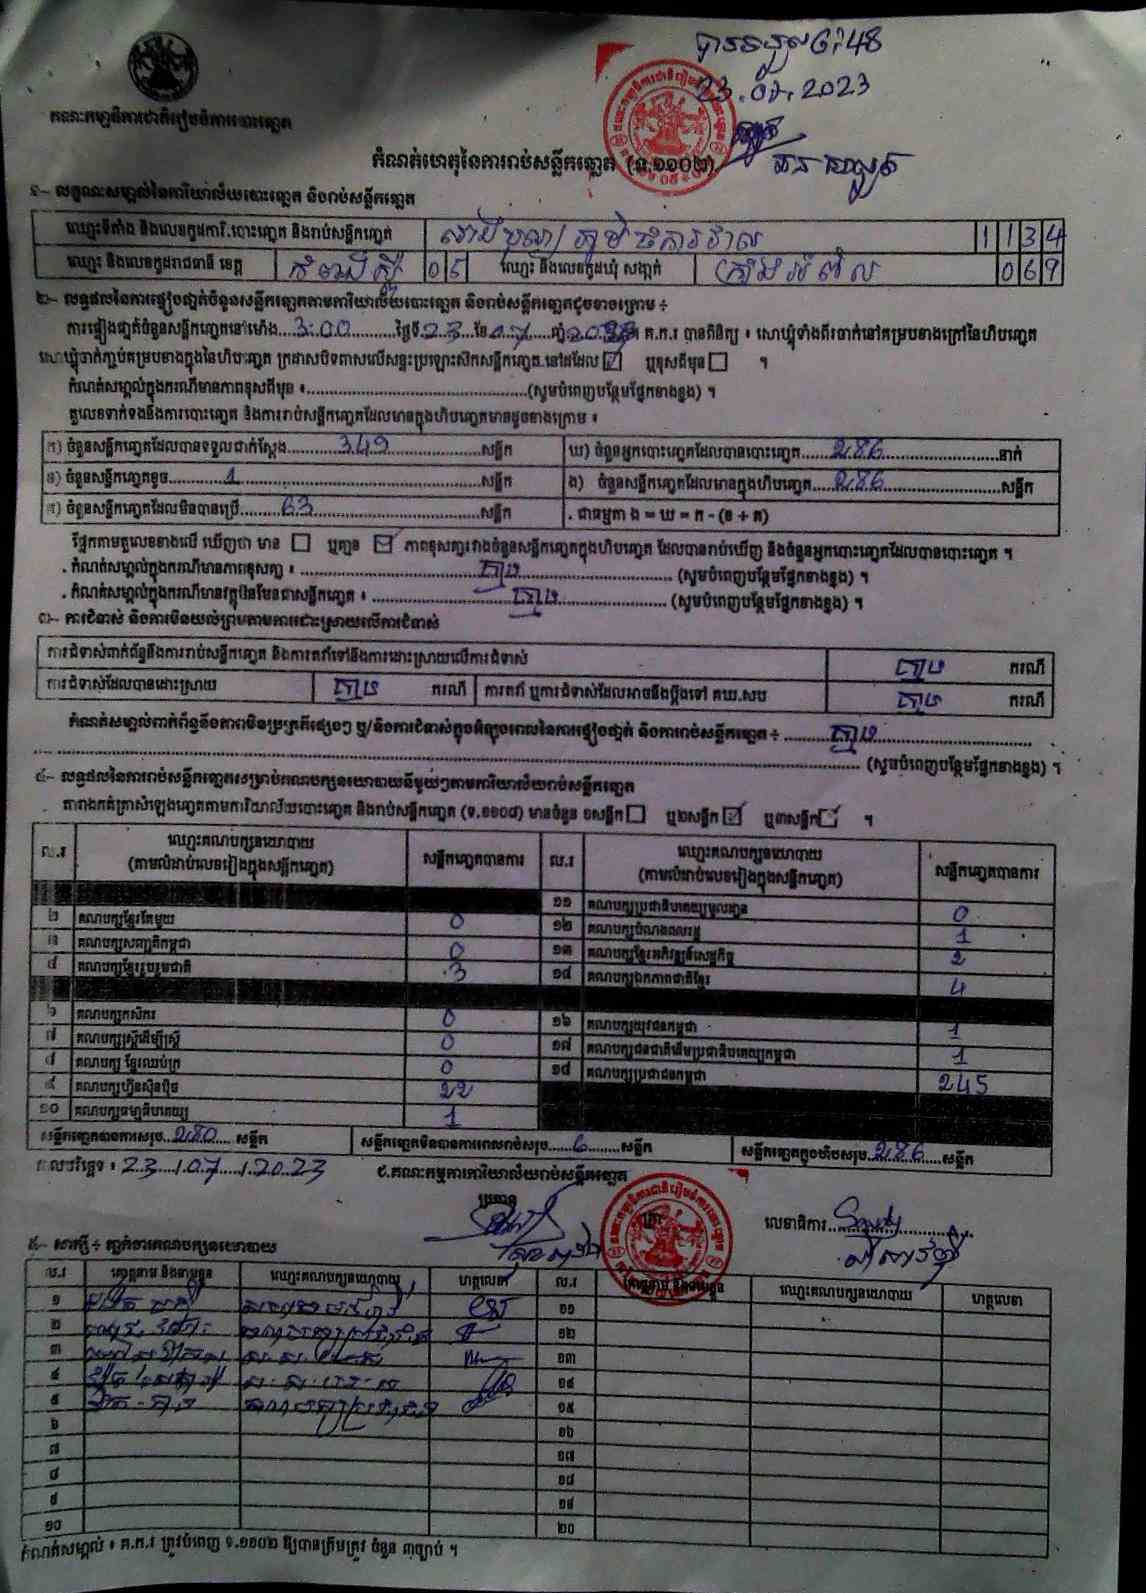 បានទទួល 6:48
23.07.2023
គណៈកម្មាធិការជាតិរៀបចំការបោះឆ្នោត
កំណត់ហេតុនៃការរាប់សន្លឹកឆ្នោត (ទ.១១០២)
១- លក្ខណៈសម្គាល់នៃការិយាល័យបោះឆ្នោត និងរាប់សន្លឹកឆ្នោត
ឈ្មោះទីតាំង និងលេខកូដការិ.បោះឆ្នោត និងរាប់សន្លឹកឆ្នោត 1134
ឈ្មោះ និងលេខកូដរាជធានី ខេត្ត កំពង់ស្ពឺ 05 ឈ្មោះ និងលេខកូដឃុំ សង្កាត់ 069
២- លទ្ធផលនៃការផ្ទៀងផ្ទាត់ចំនួនសន្លឹកឆ្នោតតាមការិយាល័យបោះឆ្នោត និងរាប់សន្លឹកឆ្នោតដូចខាងក្រោម ÷
ការផ្ទៀងផ្ទាត់ចំនួនសន្លឹកឆ្នោតនៅម៉ោង...3:00...ថ្ងៃទី23 ខែ07 ឆ្នាំ2023 គ.ក.រ បានពិនិត្យ ៖ សោឃ្លុំទាំងពីរចាក់នៅគម្របខាងក្រៅនៃហិបឆ្នោត
សោឃ្លុំចាក់ភ្ជាប់គម្របខាងក្នុងនៃហិបឆ្នោត ក្រដាសបិទពាសលើសន្ទះប្រឡោះស៊កសន្លឹកឆ្នោត.នៅដដែល ☑ ឬខុសពីមុន ☐ ។
កំណត់សម្គាល់ក្នុងករណីមានភាពខុសពីមុន ៖..........(សូមបំពេញបន្ថែមផ្នែកខាងខ្នង) ។
តួលេខទាក់ទងនឹងការបោះឆ្នោត និងការរាប់សន្លឹកឆ្នោតដែលមានក្នុងហិបឆ្នោតមានដូចខាងក្រោម ៖
ក) ចំនួនសន្លឹកឆ្នោតដែលបានទទួលជាក់ស្តែង...349...សន្លឹក ឃ) ចំនួនអ្នកបោះឆ្នោតដែលបានបោះឆ្នោត...286...នាក់
ខ) ចំនួនសន្លឹកឆ្នោតខូច...1...សន្លឹក ង) ចំនួនសន្លឹកឆ្នោតដែលមានក្នុងហិបឆ្នោត...286...សន្លឹក
គ) ចំនួនសន្លឹកឆ្នោតដែលមិនបានប្រើ...63...សន្លឹក . ជាធម្មតា ង = ឃ = ក - (ខ + គ)
ផ្អែកតាមតួលេខខាងលើ ឃើញថា មាន ☐ ឬគ្មាន ☑ ភាពខុសគ្នារវាងចំនួនសន្លឹកឆ្នោតក្នុងហិបឆ្នោត ដែលបានរាប់ឃើញ និងចំនួនអ្នកបោះឆ្នោតដែលបានបោះឆ្នោត ។
. កំណត់សម្គាល់ក្នុងករណីមានភាពខុសគ្នា ៖ ...គ្មាន... (សូមបំពេញបន្ថែមផ្នែកខាងខ្នង) ។
. កំណត់សម្គាល់ក្នុងករណីមានវត្ថុមិនមែនជាសន្លឹកឆ្នោត ៖ ...គ្មាន... (សូមបំពេញបន្ថែមផ្នែកខាងខ្នង) ។
៣- ការជំទាស់ និងការមិនយល់ព្រមតាមការដោះស្រាយលើការជំទាស់
ការជំទាស់ពាក់ព័ន្ធនឹងការរាប់សន្លឹកឆ្នោត និងការតវ៉ាទៅនឹងការដោះស្រាយលើការជំទាស់ គ្មាន ករណី
ការជំទាស់ដែលបានដោះស្រាយ គ្មាន ករណី ការតវ៉ា ឬការជំទាស់ដែលអាចនឹងប្តឹងទៅ គឃ.សប គ្មាន ករណី
កំណត់សម្គាល់ពាក់ព័ន្ធនឹងភាពមិនប្រក្រតីផ្សេងៗ ឬ/និងការជំទាស់ក្នុងអំឡុងពេលនៃការផ្ទៀងផ្ទាត់ និងការរាប់សន្លឹកឆ្នោត ÷ ...គ្មាន...
(សូមបំពេញបន្ថែមផ្នែកខាងខ្នង) ។
៤- លទ្ធផលនៃការរាប់សន្លឹកឆ្នោតសម្រាប់គណបក្សនយោបាយនីមួយៗតាមការិយាល័យរាប់សន្លឹកឆ្នោត
តារាងកត់ត្រាសំឡេងឆ្នោតតាមការិយាល័យបោះឆ្នោត និងរាប់សន្លឹកឆ្នោត (ទ.១១០៨) មានចំនួន ១សន្លឹក ☐ ឬ២សន្លឹក ☑ ឬ៣សន្លឹក ☑ ។
ល.រ ឈ្មោះគណបក្សនយោបាយ (តាមលំដាប់លេខរៀងក្នុងសន្លឹកឆ្នោត) សន្លឹកឆ្នោតបានការ ល.រ ឈ្មោះគណបក្សនយោបាយ (តាមលំដាប់លេខរៀងក្នុងសន្លឹកឆ្នោត) សន្លឹកឆ្នោតបានការ
១១ គណបក្សប្រជាធិបតេយ្យមូលដ្ឋាន 0
២ គណបក្សខ្មែរតែមួយ 0 ១២ គណបក្សបំណងពលរដ្ឋ 1
៣ គណបក្សសញ្ជាតិកម្ពុជា 0 ១៣ គណបក្សខ្មែរអភិវឌ្ឍន៍សេដ្ឋកិច្ច 2
៤ គណបក្សខ្មែររួបរួមជាតិ 3 ១៤ គណបក្សឯកភាពជាតិខ្មែរ 4
៦ គណបក្សកសិករ 0 ១៦ គណបក្សយុវជនកម្ពុជា 1
៧ គណបក្សស្ត្រីដើម្បីស្ត្រី 0 ១៧ គណបក្សជនជាតិដើមប្រជាធិបតេយ្យកម្ពុជា 1
៨ គណបក្ស ខ្មែរឈប់ក្រ 0 ១៨ គណបក្សប្រជាជនកម្ពុជា 245
៩ គណបក្សហ្វ៊ុនស៊ិនប៉ិច 22
១០ គណបក្សធម្មាធិបតេយ្យ 1
សន្លឹកឆ្នោតបានការសរុប..280.... សន្លឹក សន្លឹកឆ្នោតមិនបានការពេលរាប់សរុប......6........សន្លឹក សន្លឹកឆ្នោតក្នុងហិបសរុប..286........សន្លឹក
កាលបរិច្ឆេទ ៖ 23/07/2023 ជ.គណៈកម្មការការិយាល័យរាប់សន្លឹកឆ្នោត
ប្រធាន លេខាធិការ
៥- សាក្សី ÷ ភ្នាក់ងារគណបក្សនយោបាយ
ល.រ គោត្តនាម និងនាមខ្លួន ឈ្មោះគណបក្សនយោបាយ ហត្ថលេខា ល.រ គោត្តនាម និងនាមខ្លួន ឈ្មោះគណបក្សនយោបាយ ហត្ថលេខា
១ ១១
២ ១២
៣ ១៣
៤ ១៤
៥ ១៥
៦ ១៦
៧ ១៧
៨ ១៨
៩ ១៩
១០ ២០
កំណត់សម្គាល់ ៖ គ.ក.រ ត្រូវបំពេញ ទ.១១០២ ឱ្យបានត្រឹមត្រូវ ចំនួន ៣ច្បាប់ ។